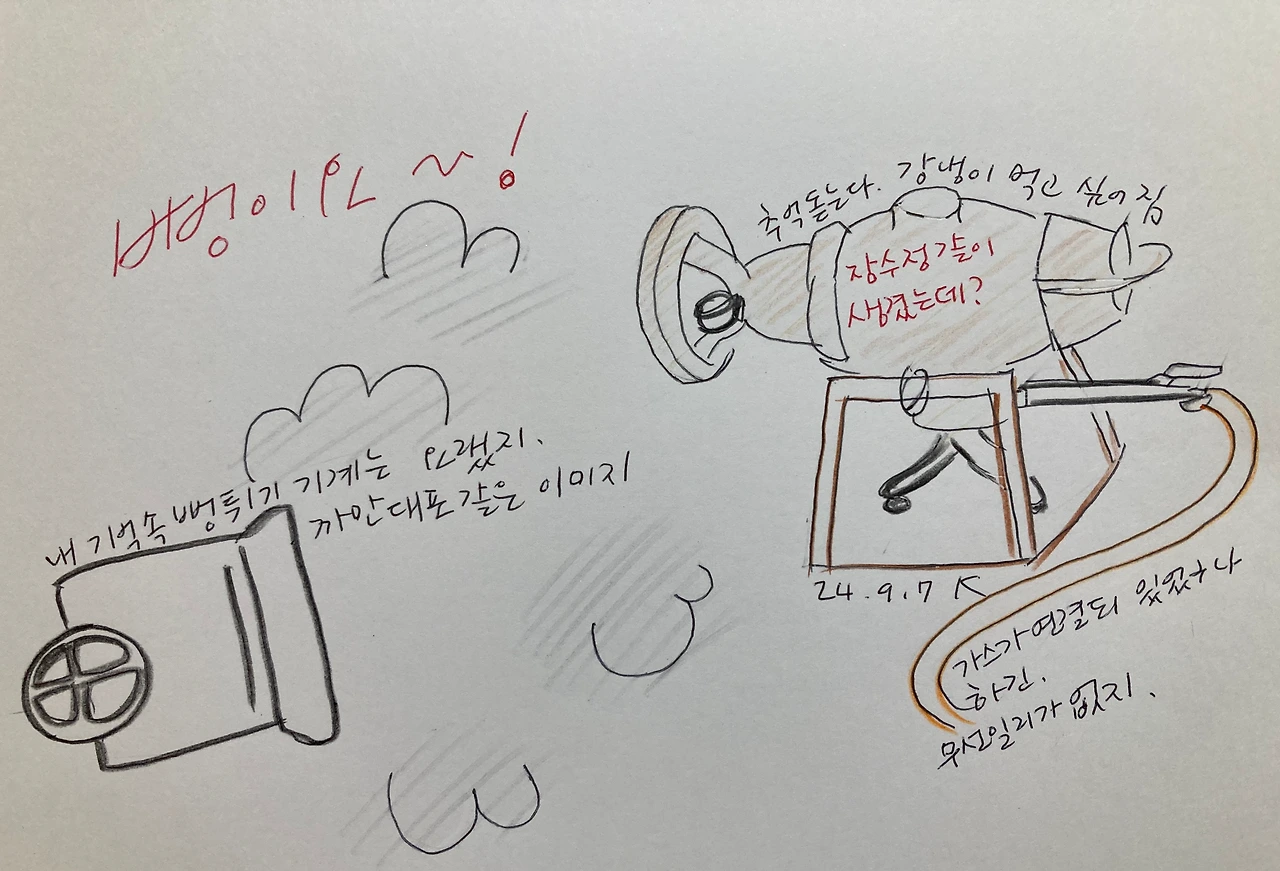 뻥이요~!
추억돋는다. 강냉이 먹고 싶어짐
장수정같이
생겼는데?
내 기억속 뻥튀기 기계는 요랬지.
까만대포같은 이미지
24.9.7 K
가스가 연결되 있었구나
하긴.
무선일리가 없지.